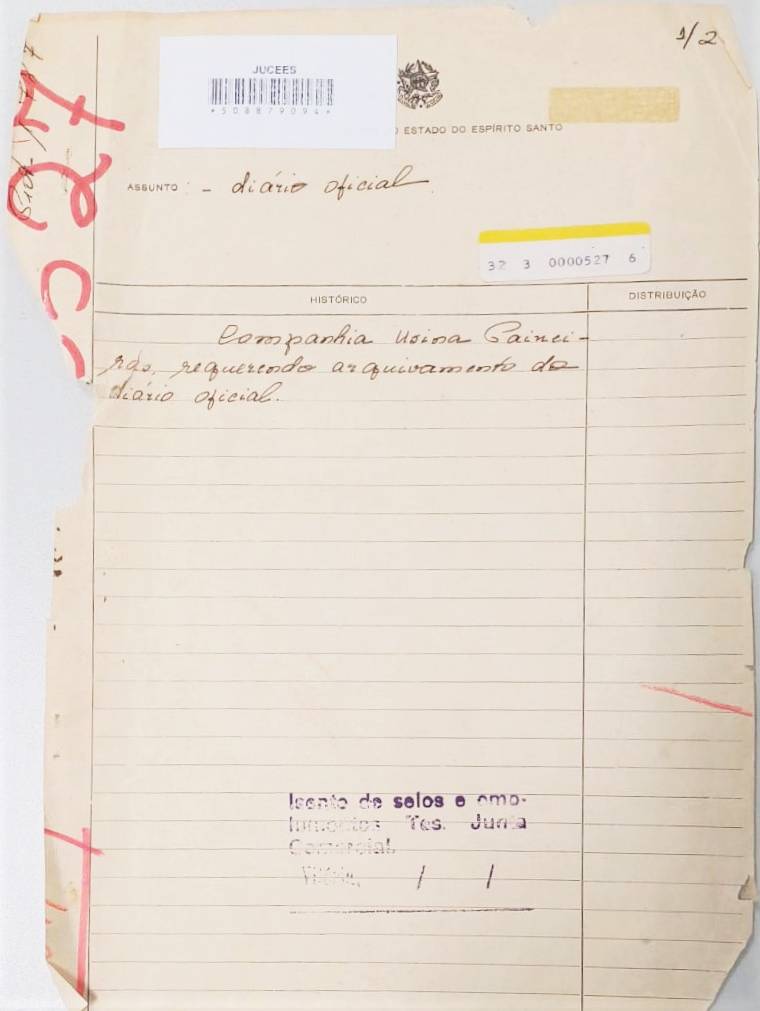 1/2
JUCEES
*508879094*
O ESTADO DO ESPÍRITO SANTO
ASSUNTO : - diário oficial
32 3 0000527 6
HISTÓRICO
DISTRIBUIÇÃO
Companhia Usina Painei-
ras, requerendo arquivamento do
diário oficial.
Isento de selos e emo-
lumentos Tes. Junta
Comercial.
Vitória, / /